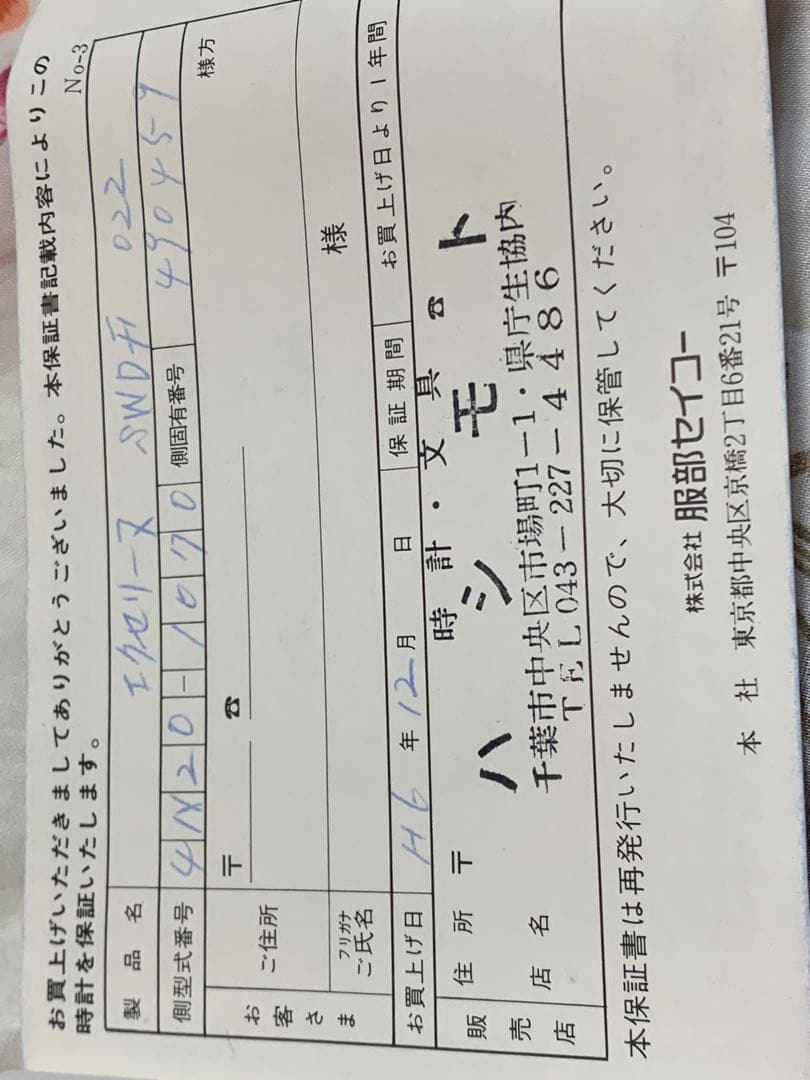 お買上げいただきましてありがとうございました。本保証書記載内容によりこの
時計を保証いたします。
No-3
製品名 エクセリーヌ SWDF 022
側型式番号 4N20-1070 側固有番号 490459
お客さま ご住所 〒 ☎ 様方
フリガナ
ご氏名 様
お買上げ日 H6年12月 日 保証期間 お買上げ日より1年間
販売店 住所 〒 時計・文具 ☎
店名 ハシモト
千葉市中央区市場町1-1・県庁生協内
TEL043-227-4486
本保証書は再発行いたしませんので、大切に保管してください。
株式会社 服部セイコー
本社 東京都中央区京橋2丁目6番21号 〒104